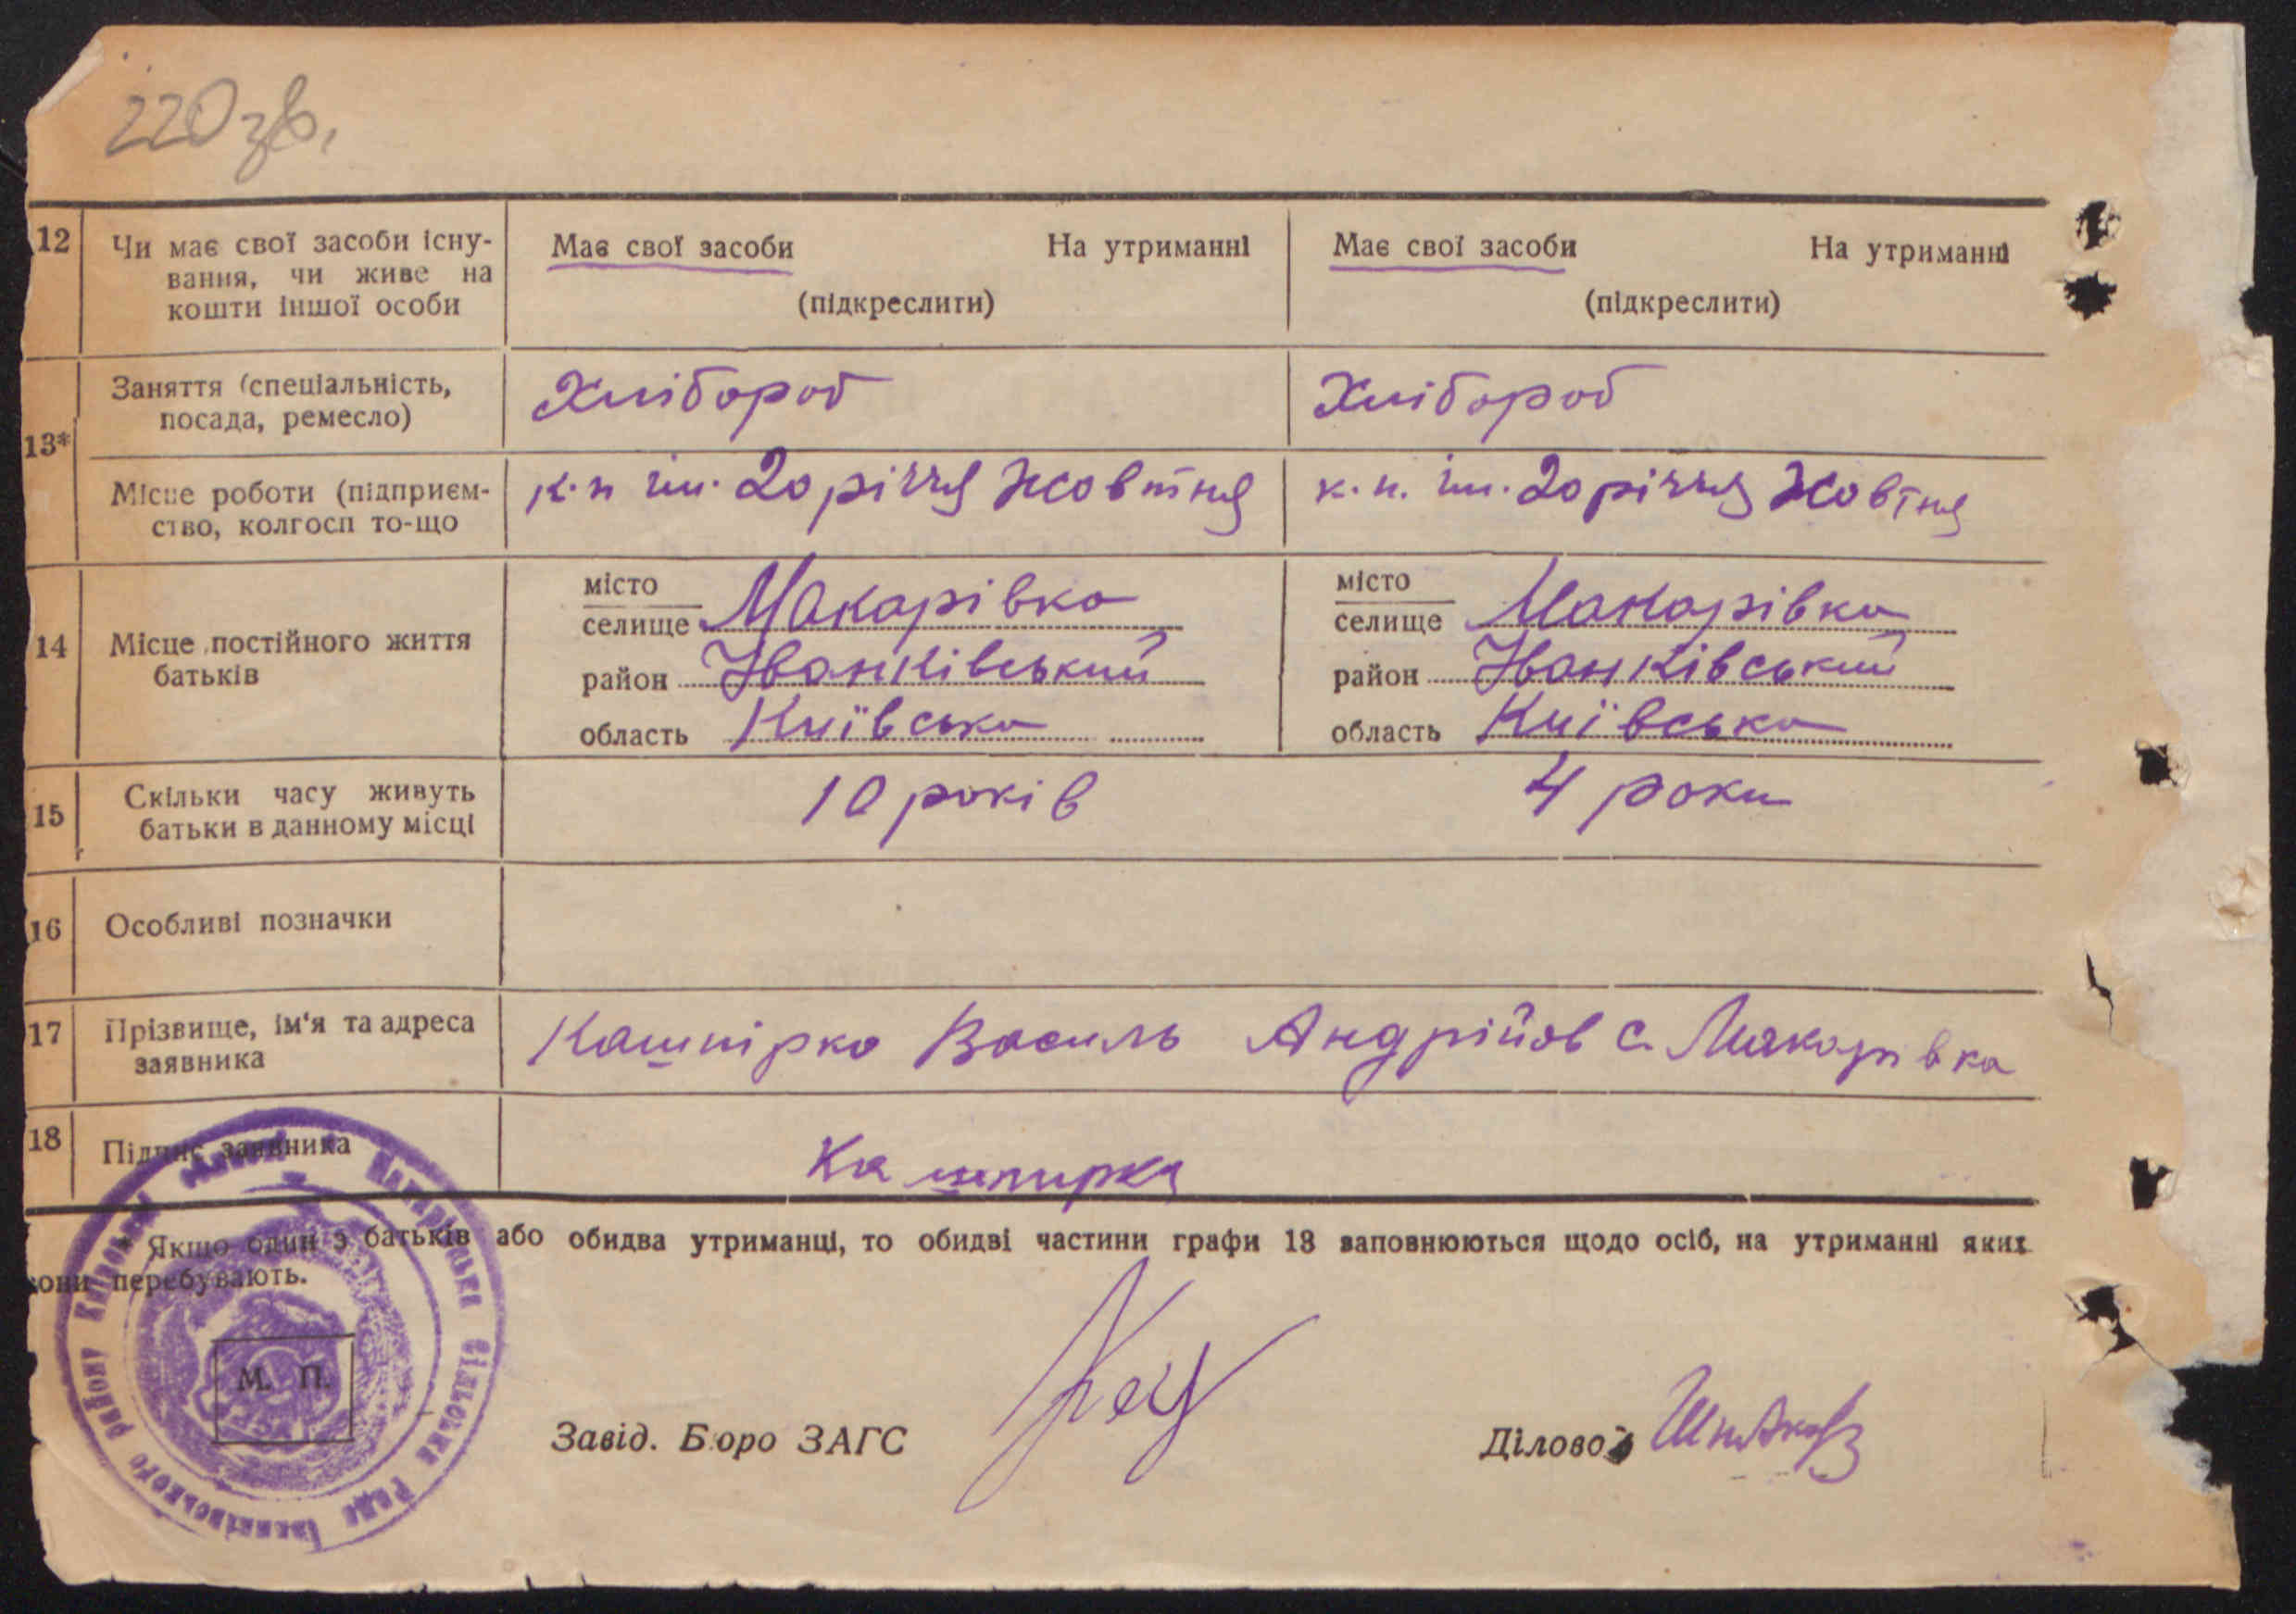 220 зв.
12 Чи має свої засоби існу- Має свої засоби На утриманні Має свої засоби На утриманні
вання, чи живе на
кошти іншої особи (підкреслити) (підкреслити)
13* Заняття (спеціальність, Хлібороб Хлібороб
посада, ремесло)
Місце роботи (підприєм- к.п. ім. 20 річчя Жовтня к.п. ім. 20 річчя Жовтня
ство, колгосп то-що
14 Місце постійного життя місто місто
батьків селище Макарівка селище Макарівка
район Іванківський район Іванківський
область Київська область Київська
15 Скільки часу живуть 10 років 4 роки
батьки в данному місці
16 Особливі позначки
17 Прізвище, ім'я та адреса Кашпірко Василь Андрійов с. Макарівка
заявника
18 Підпис заявника Кашпирко
* Якщо один з батьків або обидва утриманці, то обидві частини графи 13 заповнюються щодо осіб, на утриманні яких
вони перебувають.
Макарівська Сільська Рада Іванківського району Київської області
М. П.
Завід. Бюро ЗАГС Діловод